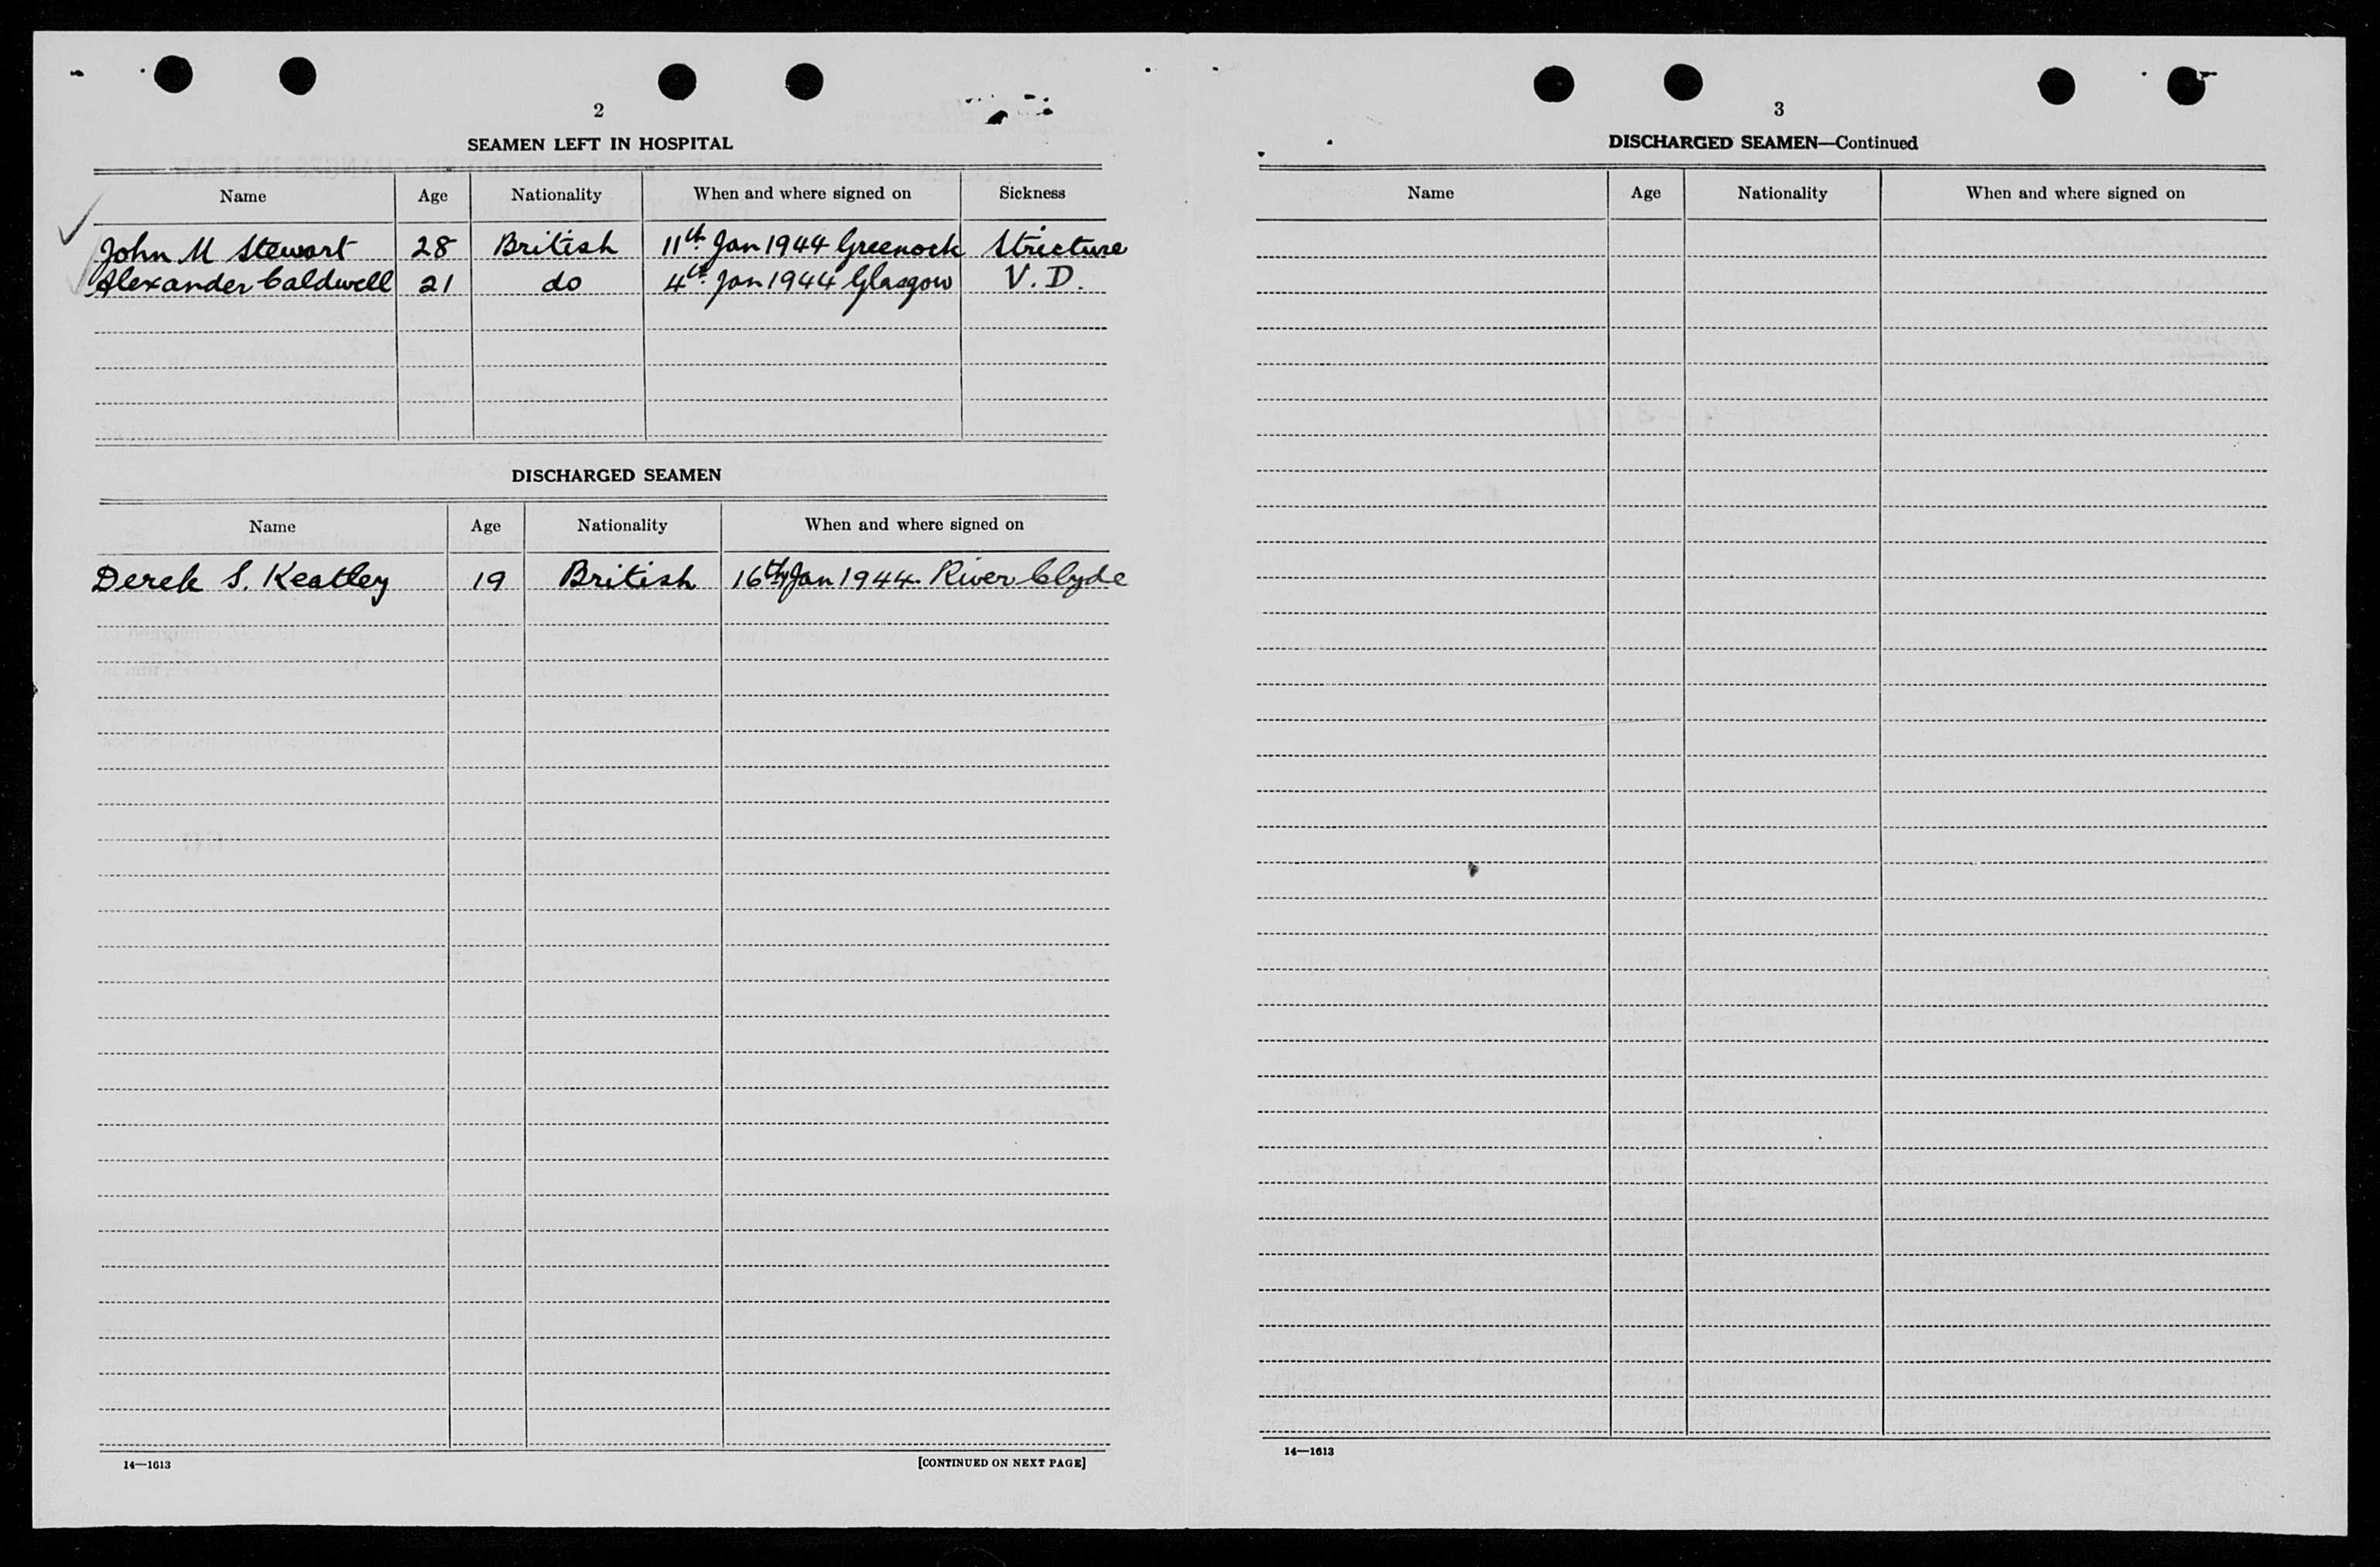 2
SEAMEN LEFT IN HOSPITAL
Name Age Nationality When and where signed on Sickness
John M Stewart 28 British 11th Jan 1944 Greenock Stricture
Alexander Caldwell 21 do 4th Jan 1944 Glasgow V. D.
DISCHARGED SEAMEN
Name Age Nationality When and where signed on
Derek S. Keatley 19 British 16th Jan 1944. River Clyde
14—1613
[CONTINUED ON NEXT PAGE]
3
DISCHARGED SEAMEN—Continued
Name Age Nationality When and where signed on
14—1613